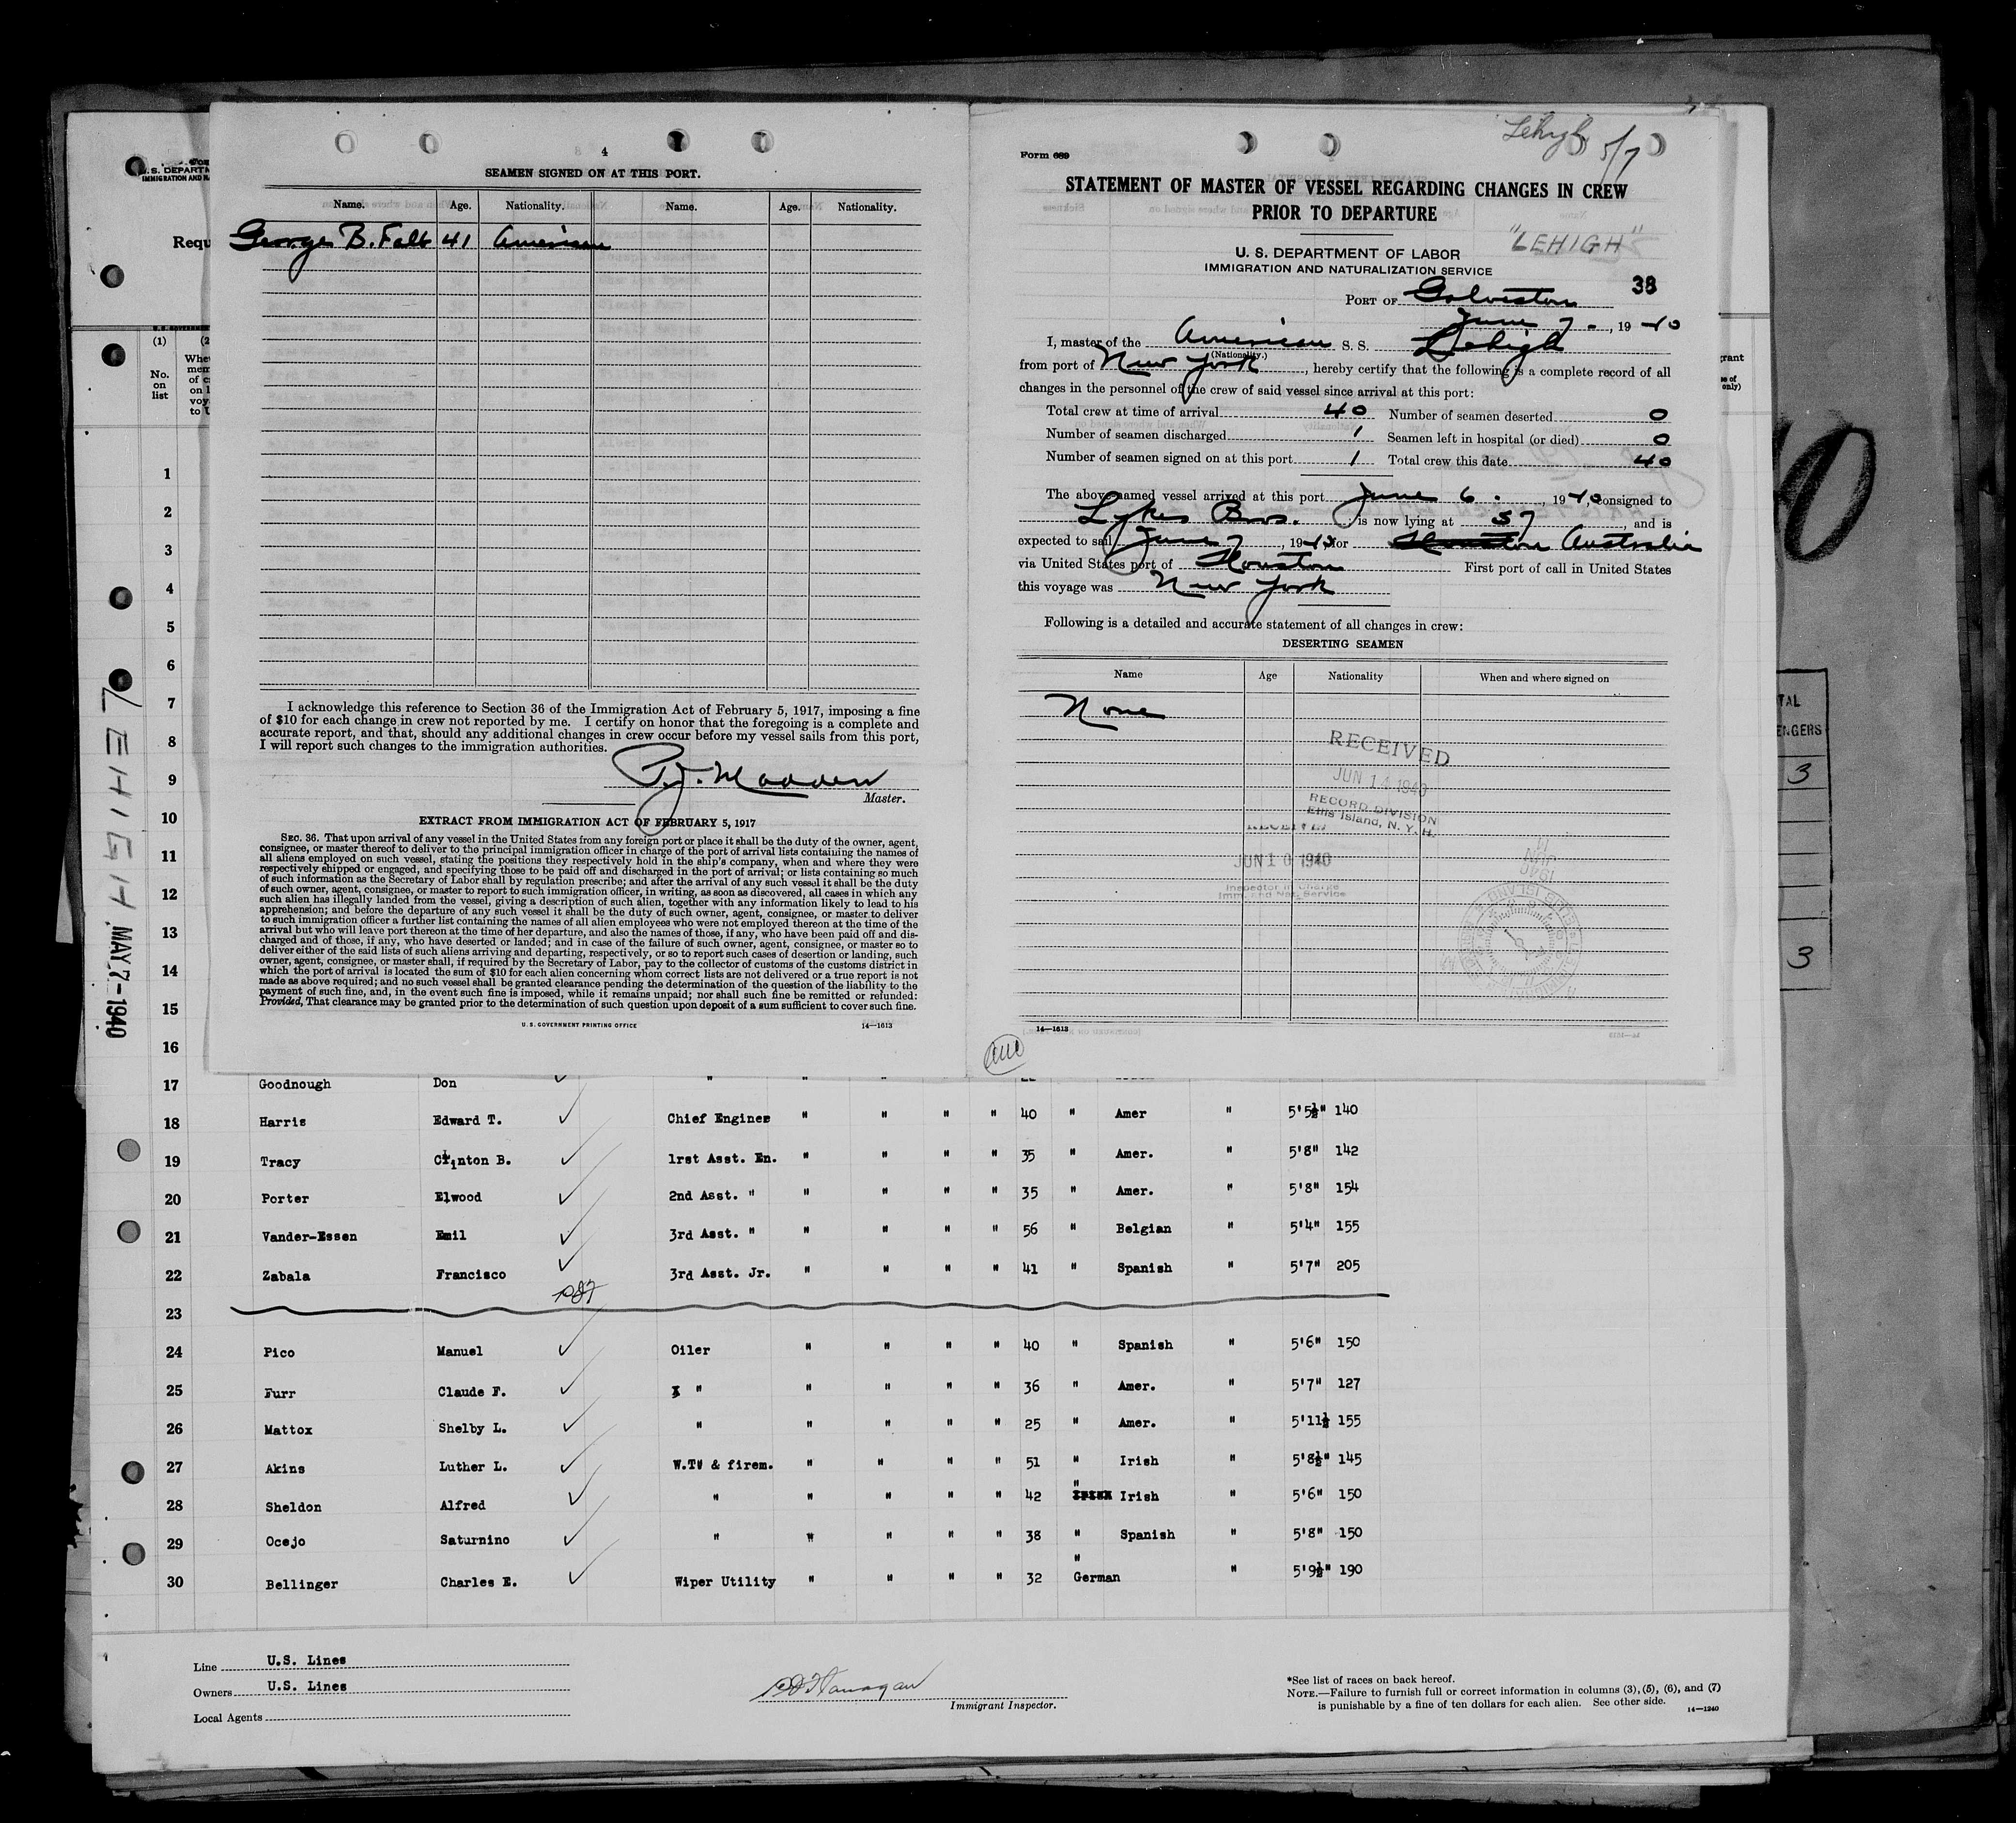 4
SEAMEN SIGNED ON AT THIS PORT.
Name. Age. Nationality. Name. Age. Nationality.
George B. Falb 41 American
I acknowledge this reference to Section 36 of the Immigration Act of February 5, 1917, imposing a fine
of $10 for each change in crew not reported by me. I certify on honor that the foregoing is a complete and
accurate report, and that, should any additional changes in crew occur before my vessel sails from this port,
I will report such changes to the immigration authorities.
P.J. Madden
Master.
EXTRACT FROM IMMIGRATION ACT OF FEBRUARY 5, 1917
SEC. 36. That upon arrival of any vessel in the United States from any foreign port or place it shall be the duty of the owner, agent,
consignee, or master thereof to deliver to the principal immigration officer in charge of the port of arrival lists containing the names of
all aliens employed on such vessel, stating the positions they respectively hold in the ship's company, when and where they were
respectively shipped or engaged, and specifying those to be paid off and discharged in the port of arrival; or lists containing so much
of such information as the Secretary of Labor shall by regulation prescribe; and after the arrival of any such vessel it shall be the duty
of such owner, agent, consignee, or master to report to such immigration officer, in writing, as soon as discovered, all cases in which any
such alien has illegally landed from the vessel, giving a description of such alien, together with any information likely to lead to his
apprehension; and before the departure of any such vessel it shall be the duty of such owner, agent, consignee, or master to deliver
to such immigration officer a further list containing the names of all alien employees who were not employed thereon at the time of the
arrival but who will leave port thereon at the time of her departure, and also the names of those, if any, who have been paid off and dis-
charged and of those, if any, who have deserted or landed; and in case of the failure of such owner, agent, consignee, or master so to
deliver either of the said lists of such aliens arriving and departing, respectively, or so to report such cases of desertion or landing, such
owner, agent, consignee, or master shall, if required by the Secretary of Labor, pay to the collector of customs of the customs district in
which the port of arrival is located the sum of $10 for each alien concerning whom correct lists are not delivered or a true report is not
made as above required; and no such vessel shall be granted clearance pending the determination of the question of the liability to the
payment of such fine, and, in the event such fine is imposed, while it remains unpaid; nor shall such fine be remitted or refunded:
Provided, That clearance may be granted prior to the determination of such question upon deposit of a sum sufficient to cover such fine.
U. S. GOVERNMENT PRINTING OFFICE 14—1613
Lehigh 5/7
Form 689
STATEMENT OF MASTER OF VESSEL REGARDING CHANGES IN CREW
PRIOR TO DEPARTURE
"LEHIGH"
U. S. DEPARTMENT OF LABOR
IMMIGRATION AND NATURALIZATION SERVICE
38
PORT OF Galveston
June 7 - , 19 40
I, master of the American S. S. Lehigh
(Nationality.)
from port of New York, hereby certify that the following is a complete record of all
changes in the personnel of the crew of said vessel since arrival at this port:
Total crew at time of arrival 40 Number of seamen deserted 0
Number of seamen discharged 1 Seamen left in hospital (or died) 0
Number of seamen signed on at this port 1 Total crew this date 40
The above-named vessel arrived at this port June 6 . , 1940, consigned to
Lykes Bros. is now lying at 37, and is
expected to sail June 7, 1940, for Australia
via United States port of Houston First port of call in United States
this voyage was New York
Following is a detailed and accurate statement of all changes in crew:
DESERTING SEAMEN
Name Age Nationality When and where signed on
None
RECEIVED
JUN 14 1940
RECORD DIVISION
Ellis Island, N. Y. H.
RECEIVED
JUN 10 1940
Inspector in Charge
Imm. and Nat. Service
14—1613
S. DEPARTM
IMMIGRATION AND N
Requ
(1) (2
No.
on
list
Whe
mem
of c
on l
voy
to U
1
2
3
4
5
6
7
8
9
10
11
12
13
14
15
16
LEHIGH MAY 7-1940
17 Goodnough Don "
18 Harris Edward T. Chief Enginee " " " " 40 " Amer " 5'5½" 140
19 Tracy Clinton B. 1rst Asst. En. " " " " 35 " Amer. " 5'8" 142
20 Porter Elwood 2nd Asst. " " " " " 35 " Amer. " 5'8" 154
21 Vander-Essen Emil 3rd Asst. " " " " " 56 " Belgian " 5'4" 155
22 Zabala Francisco 3rd Asst. Jr. " " " " 41 " Spanish " 5'7" 205
23
24 Pico Manuel Oiler " " " " 40 " Spanish " 5'6" 150
25 Furr Claude F. " " " " " 36 " Amer. " 5'7" 127
26 Mattox Shelby L. " " " " " 25 " Amer. " 5'11½ 155
27 Akins Luther L. W.T" & firem. " " " " 51 " Irish " 5'8½" 145
28 Sheldon Alfred " " " " " 42 " Irish " 5'6" 150
29 Ocejo Saturnino " " " " " 38 " Spanish " 5'8" 150
30 Bellinger Charles E. Wiper Utility " " " " 32 " German " 5'9½" 190
Line U.S. Lines
Owners U.S. Lines
Local Agents
Immigrant Inspector.
*See list of races on back hereof.
NOTE.—Failure to furnish full or correct information in columns (3), (5), (6), and (7)
is punishable by a fine of ten dollars for each alien. See other side.
14—1240
rant
only)
TAL
ENGERS
3
3